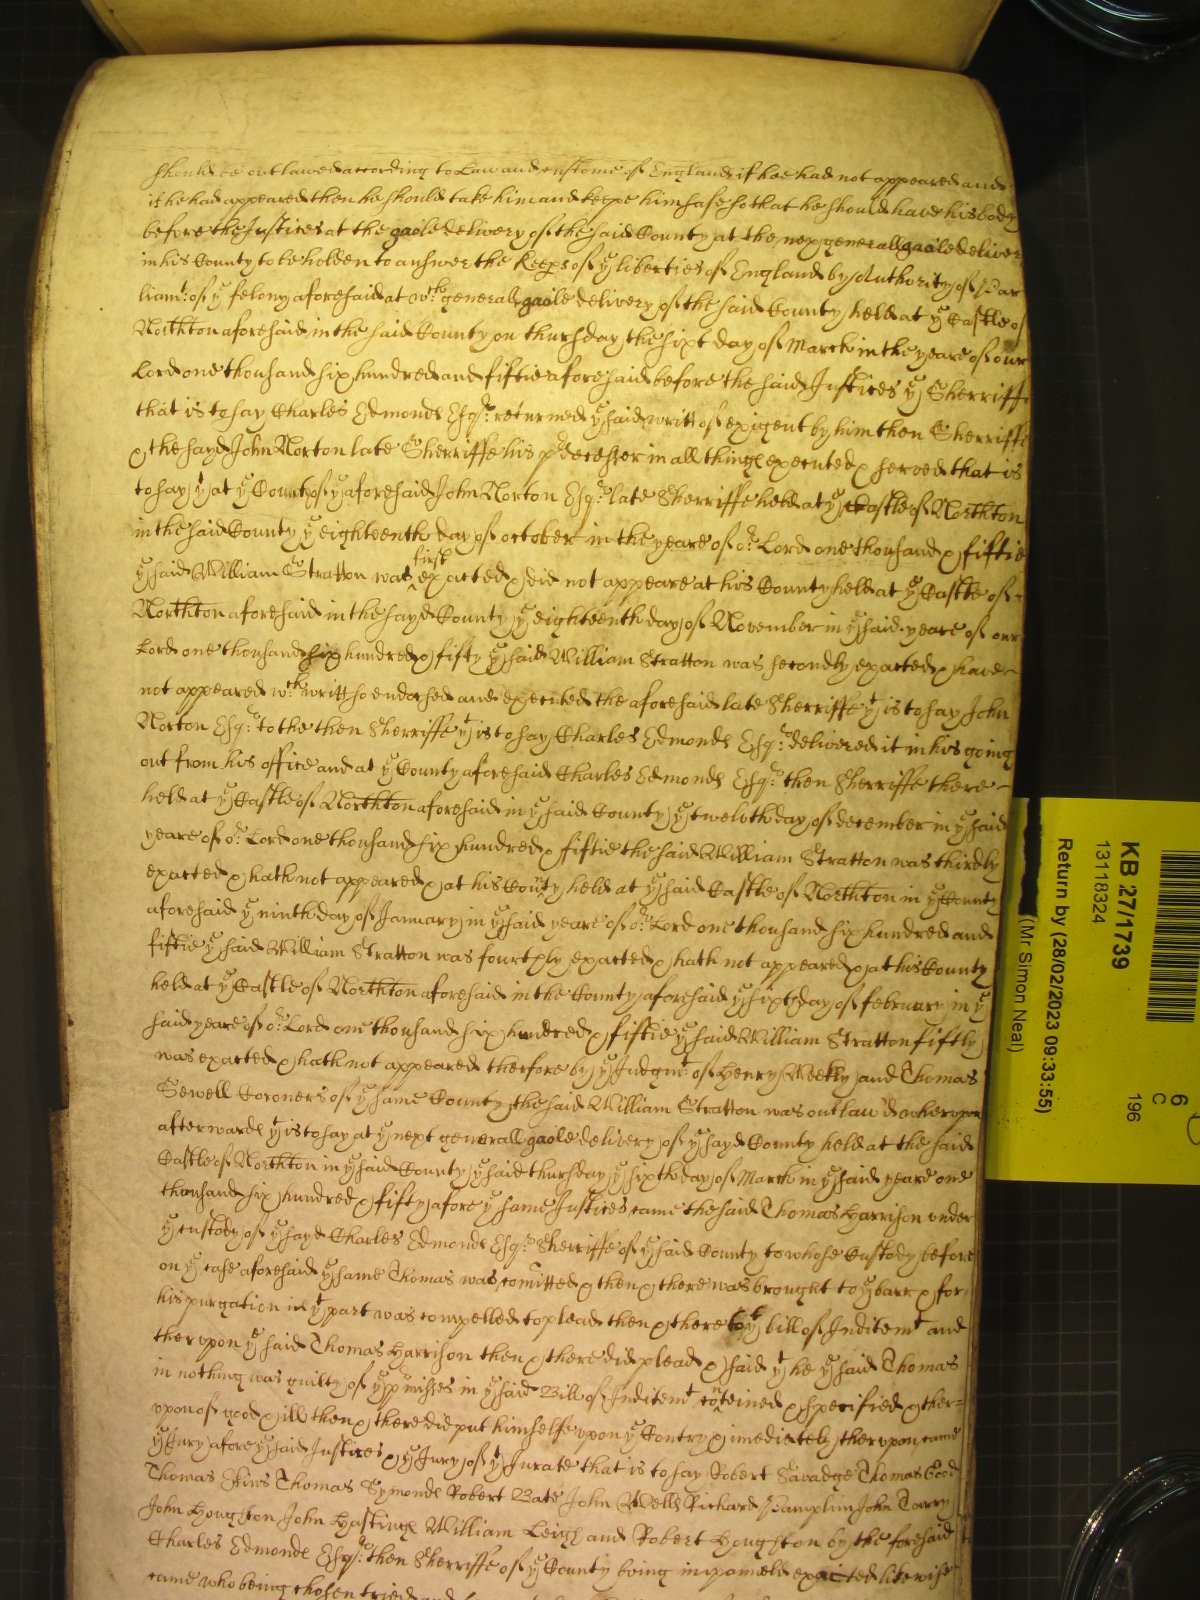 should be outlawed according to Law and custome of England if hee had not appeared and
if he had appeared then he should take him and keepe him safe so that he should have his body
before the Justices at the gaole delivery of the said County at the next generall gaole deliver
in his County to be holden to answer the Keeps of yᵉ liberties of England by Authority of Par
liamᵗ: of yᵉ felony aforesaid at wᶜʰ generall gaole delivery of the said County held at yᵉ Castle of
Northton aforesaid in the said County on thursday the sixt day of March in the yeare of our
Lord one thousand six hundred and fiftie aforesaid before the said Justices yᵉ Sherriffe
that is to say Charles Edmonds Esqʳ: returned yᵉ said writt of exigent by him then Sherriffe
& the sayd John Norton late Sherriffe his pᵈecessor in all things executed & served that is
to say yᵗ at yᵉ County of yᵉ aforesaid John Norton Esqʳ: late Sherriffe held at yᵉ Castle of Northton
in the said County yᵉ eighteenth day of october in the yeare of oʳ Lord one thousand & fiftie
yᵉ said William Stratton was first exacted & did not appeare at his County held at yᵉ Castle of
Northton aforesaid in the sayd County yᵉ eighteenth day of November in yᵉ said yeare of our
Lord one thousand six hundred & fifty yᵉ said William Stratton was secondly exacted & have
not appeared wᶜʰ writt so endorsed and executed the aforesaid late Sherriffe yᵗ is to say John
Norton Esqʳ: to the then Sherriffe yᵗ is to say Charles Edmonds Esqʳ: delivered it in his going
out from his office and at yᵉ County aforesaid Charles Edmonds Esqʳ: then Sherriffe there
held at yᵉ Castle of Northton aforesaid in yᵉ said County yᵉ twelvth day of december in yᵉ said
yeare of oʳ Lord one thousand six hundred & fiftie the said William Stratton was thirdly
exacted & hath not appeared & at his County held at yᵉ said Castle of Northton in yᵉ County
aforesaid yᵉ ninth day of January in yᵉ said yeare of oʳ Lord one thousand six hundred and
fiftie yᵉ said William Stratton was fourthly exacted & hath not appeared & at his County
held at yᵉ Castle of Northton aforesaid in the County aforesaid yᵉ sixth day of february in yᵉ
said yeare of oʳ Lord one thousand six hundred & fiftie yᵉ said William Stratton fiftly
was exacted & hath not appeared therfore by yᵉ Judgmᵗ: of Henry Weekly and Thomas
Sewell Coroners of yᵉ same County the said William Stratton was outlaw'd wherupon
afterwards yᵗ is to say at yᵉ next generall gaole delivery of yᵉ sayd County held at the said
Castle of Northton in yᵉ said County yᵉ said thursday yᵉ sixth day of March in yᵉ said yeare one
thousand six hundred & fifty afore yᵉ same Justices came the said Thomas Harrison under
yᵉ custody of yᵉ sayd Charles Edmonds Esqʳ: Sherriffe of yᵉ said County to whose Custody before
on yᵉ case aforesaid yᵉ same Thomas was comitted & then & there was brought to yᵉ barr & for
his purgation in yᵗ part was compelled to plead then & there to yᵉ bill of Inditemᵗ and
therupon yᵉ said Thomas Harrison then & there did plead & said yᵗ he yᵉ said Thomas
in nothing was guilty of yᵉ pᵉmisses in yᵉ said Bill of Inditemᵗ coteined & specified & ther=
upon of good & ill then & there did put himselfe upon yᵉ Contry & imediately therupon came
yᵉ Jury afore yᵉ said Justices & yᵉ Jury of yᵗ Jurate that is to say Robert Savadge Thomas Good
Thomas Ekins Thomas Symonds Robert Bate John Wells Richard Pamplin John Tarry
John Houghton John Hastings William Leigh and Robert Houghton by the foresaid
Charles Edmonds Esqʳ: then Sherriffe of yᵉ County being inpaneld exacted likewise
came who being chosen tried and
KB 27/1739
13118324
Return by (28/02/2023 09:33:55)
(Mr Simon Neal)
6
C
196